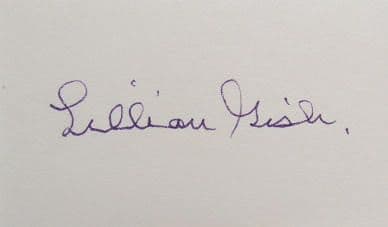 Lillian Gish.